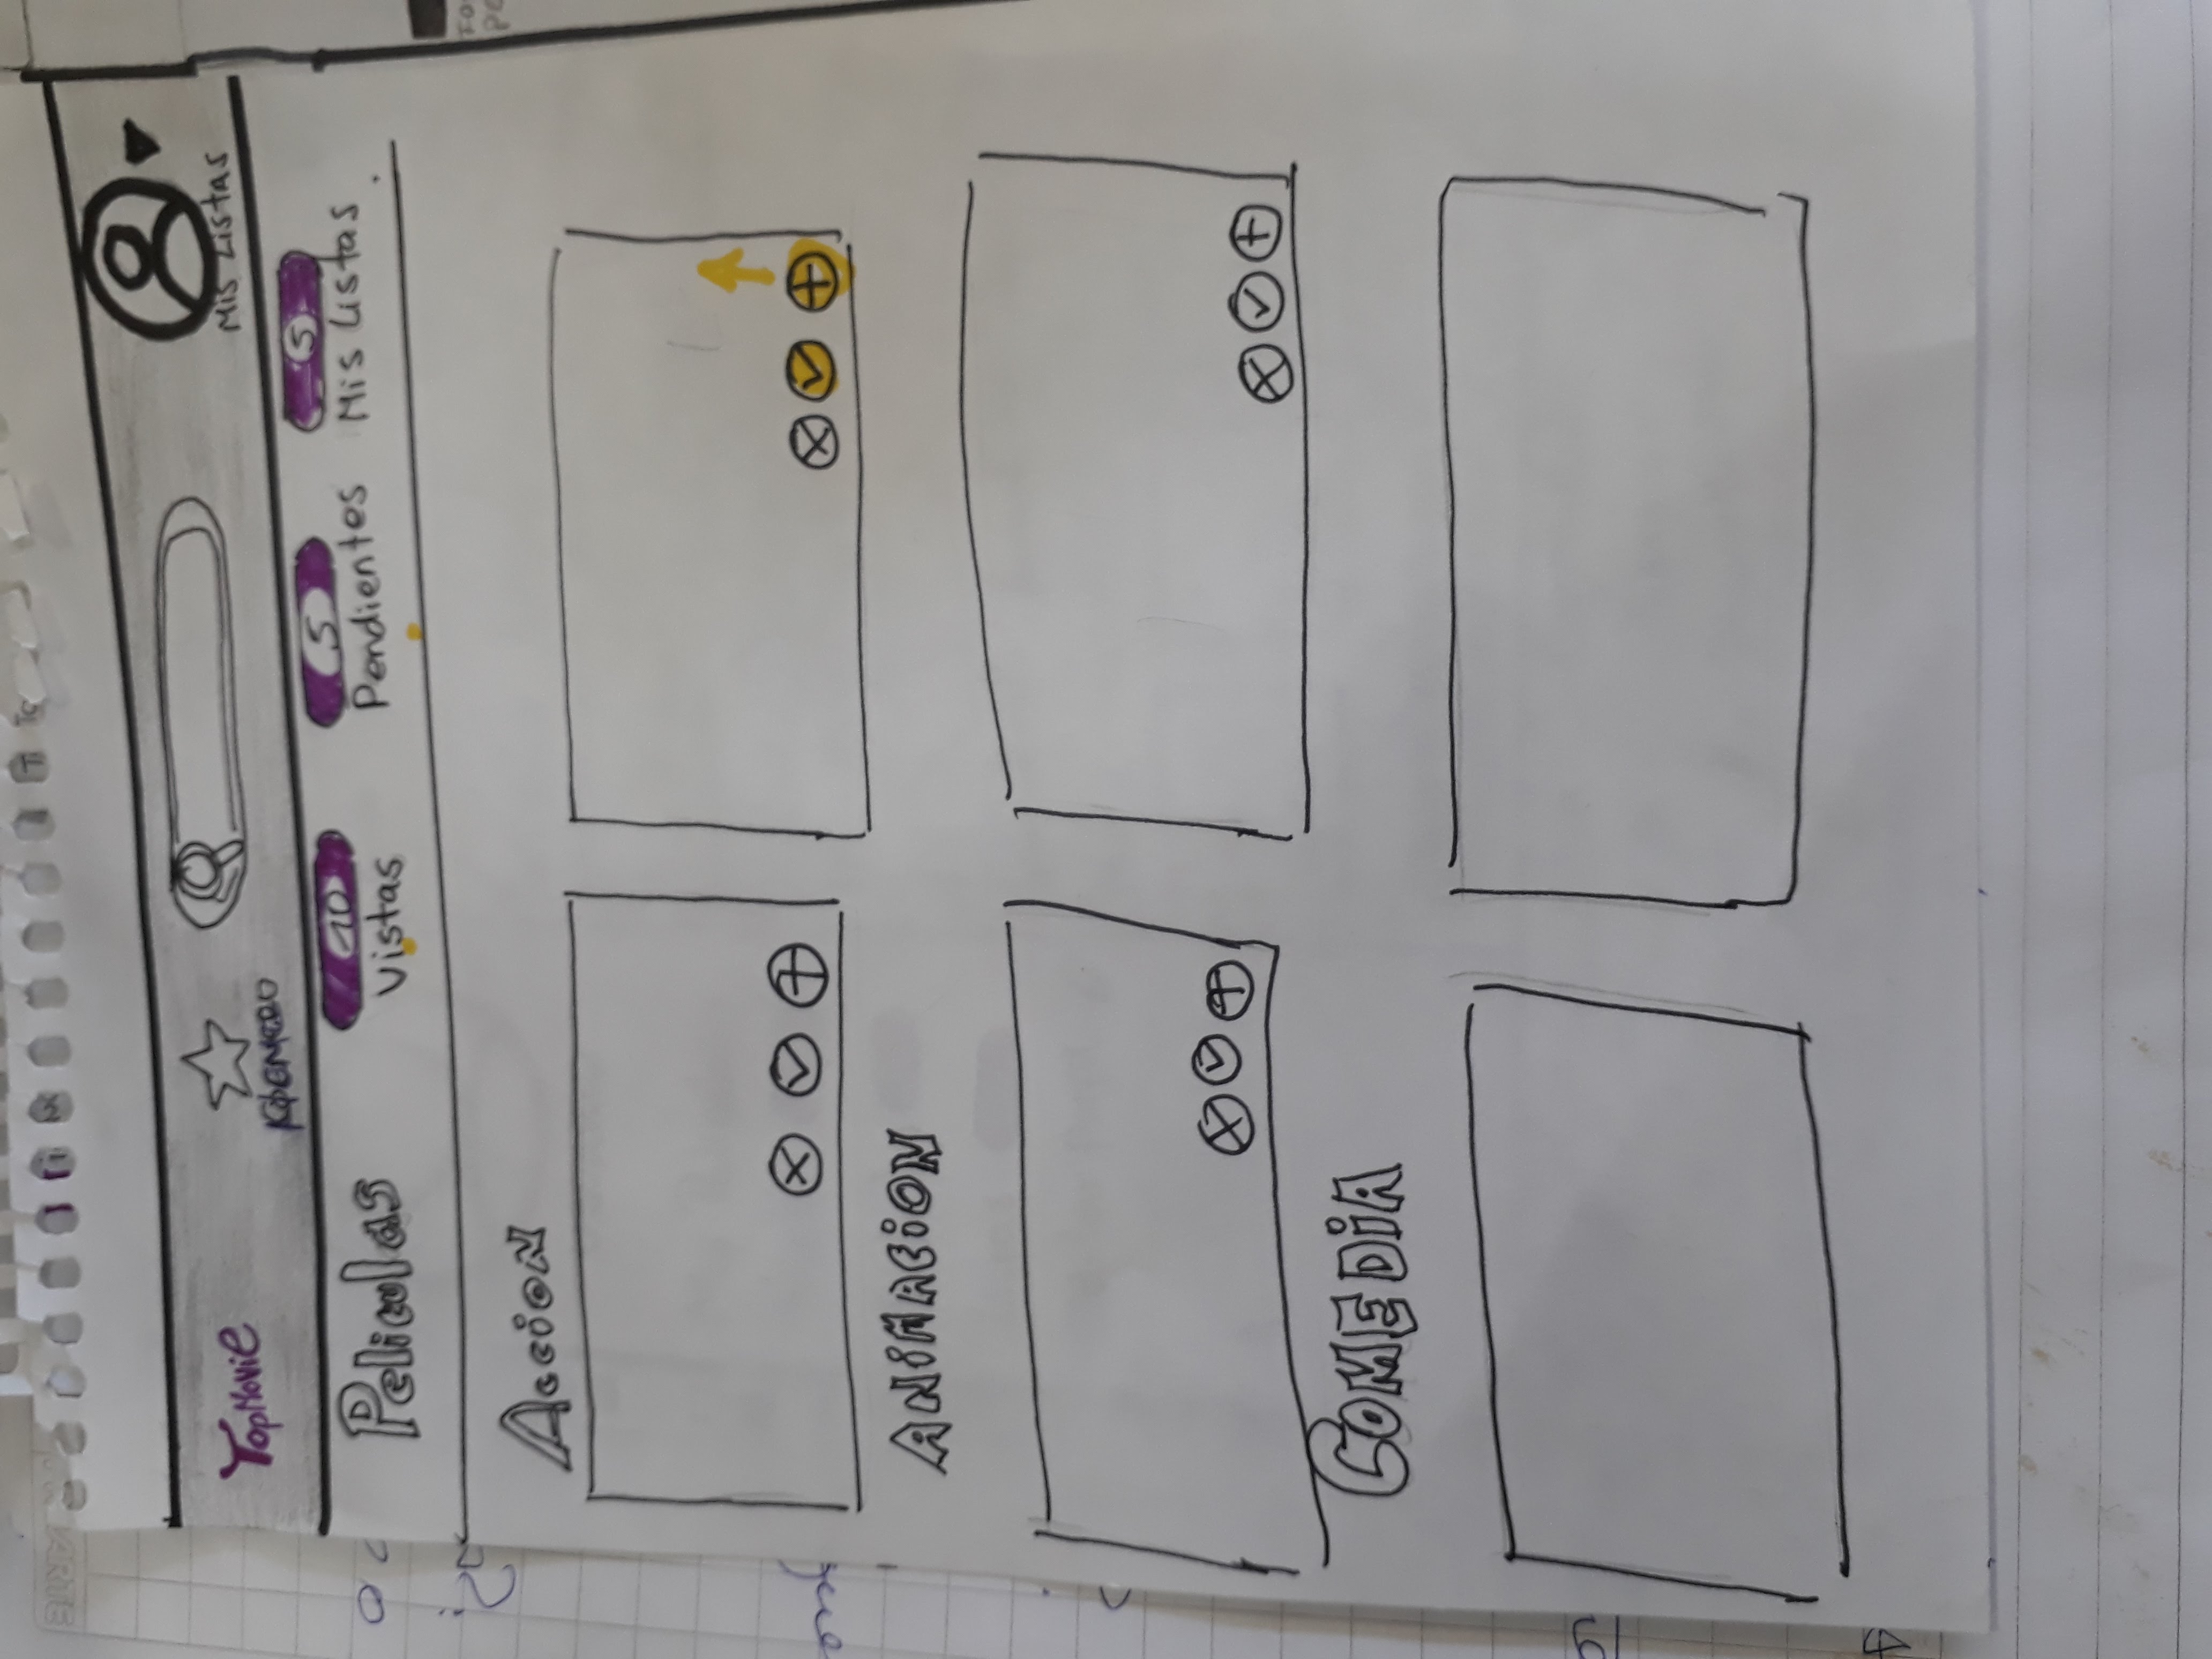 TopMovie
Mis Listas
Peliculas
10
5
5
Vistas
Pendientes
Mis Listas
Accion
Animacion
Comedia